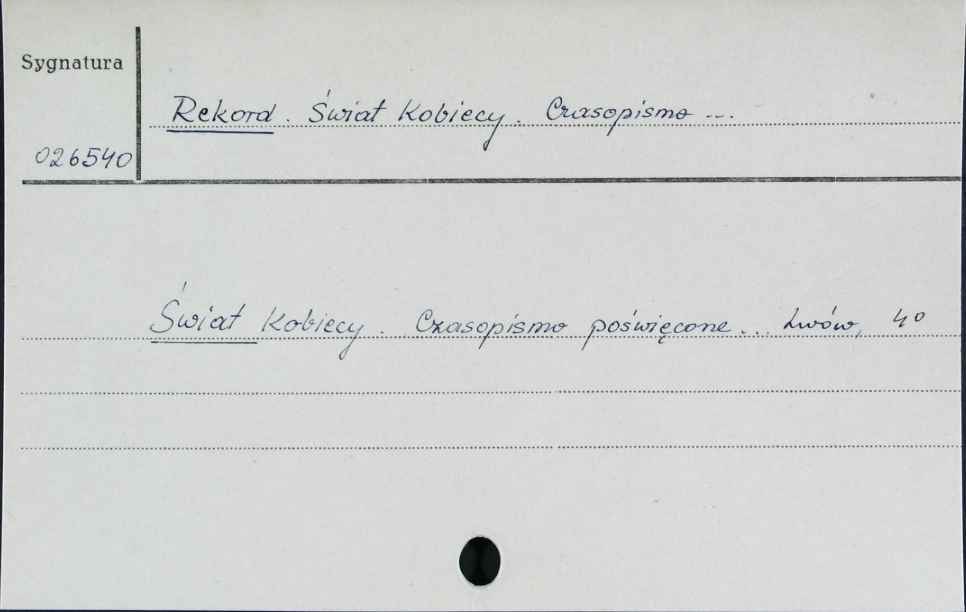 Sygnatura
Rekord. Świat Kobiecy. Czasopismo ...
026540
Świat Kobiecy. Czasopismo poświęcone... Lwów, 4º